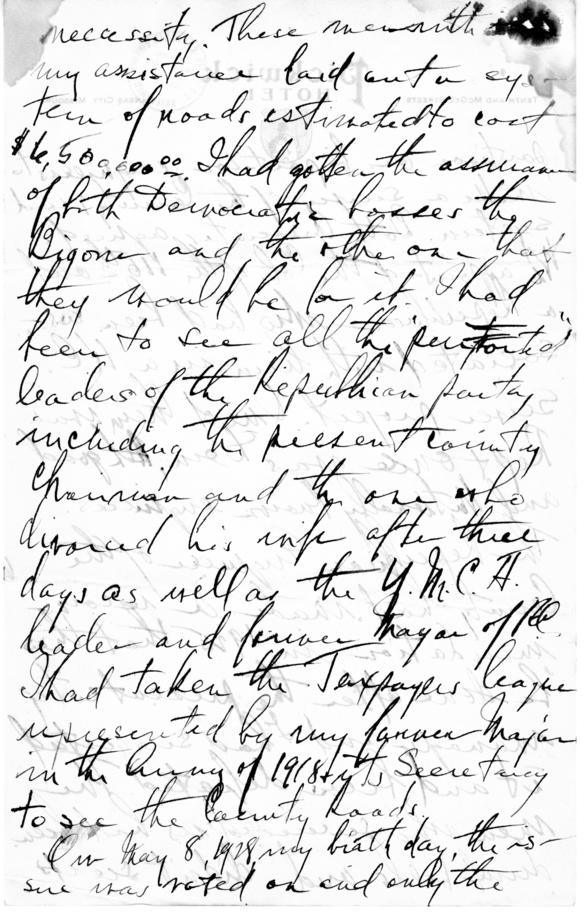 necessity. These men with
my assistance laid out a sys-
tem of roads estimated to cost
$6,500,000.00. I had gotten the assurance
of both Democratic bosses the
Bigone and the other one that
they would be for it. I had
been to see all the "
leaders of the Republican party
including the present county
Chairman and the one who
divorced his wife after three
days as well as the Y.M.C.A.
leader and former Mayor of KC.
I had taken the Taxpayers league
represented by my former Major
in the Army of 1918 & its Secretary
to see the County Roads.
On May 8, 1928, my birthday, the is-
sue was voted on and only the